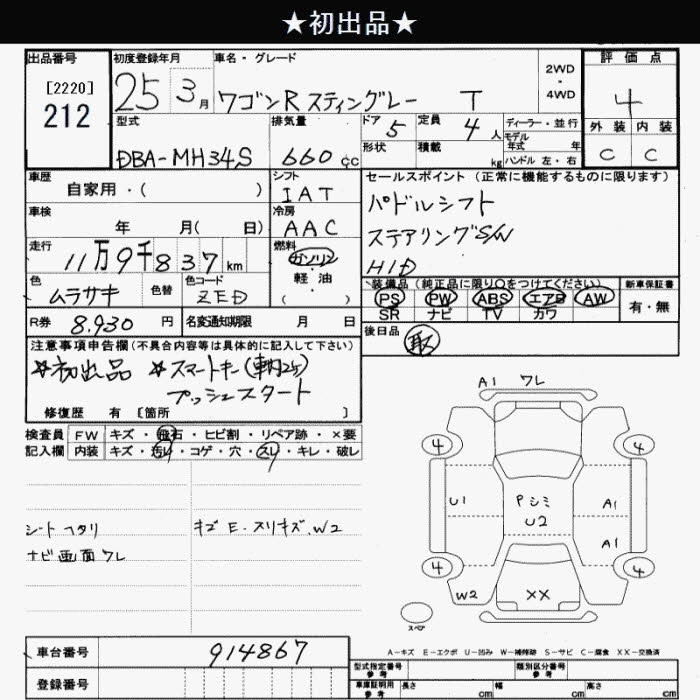 ★初出品★
出品番号
[2220]
212
初度登録年月
25 3月
車名・グレード
ワゴンR スティングレー T
2WD
・
4WD
評価点
4
外装 内装
C C
型式
DBA-MH34S
排気量
660cc
ドア 5
定員 4人
ディーラー・並行
モデル
年式 年
形状
積載 kg
ハンドル 左・右
車歴
自家用・( )
シフト
IAT
セールスポイント(正常に機能するものに限ります)
パドルシフト
ステアリングS/W
HID
車検
年 月( 日)
冷房
AAC
走行
11万9千837km
燃料
ガソリン
軽油
( )
色
ムラサキ
色替
色コード
ZED
装備品(純正品に限り○をつけてください)
PS PW ABS エアB AW
SR ナビ TV カワ
新車保証書
有・無
R券 8,930円
名変通知期限 月 日
後日品
取
注意事項申告欄(不具合内容等は具体的に記入して下さい)
☆初出品 ☆スマートキー(車内2ケ)
プッシュスタート
修復歴 有 [箇所 ]
検査員
記入欄
FW キズ・飛石・ヒビ割・リペア跡・×要
内装 キズ・汚れ・コゲ・穴・スレ・キレ・破レ
シート ヘタリ
ナビ画面ワレ
キズ E・スリキズ、W2
A1 ワレ
4 4
U1
Pシミ
U2
A1
A1
4 4
W2
XX
スペア
A-キズ E-エクボ U-凹み W-補修跡 S-サビ C-腐食 XX-交換済
車台番号 914867
登録番号
型式指定番号
参考
類別区分番号
参考
車庫証明用
参考
長さ cm
幅 cm
高さ cm